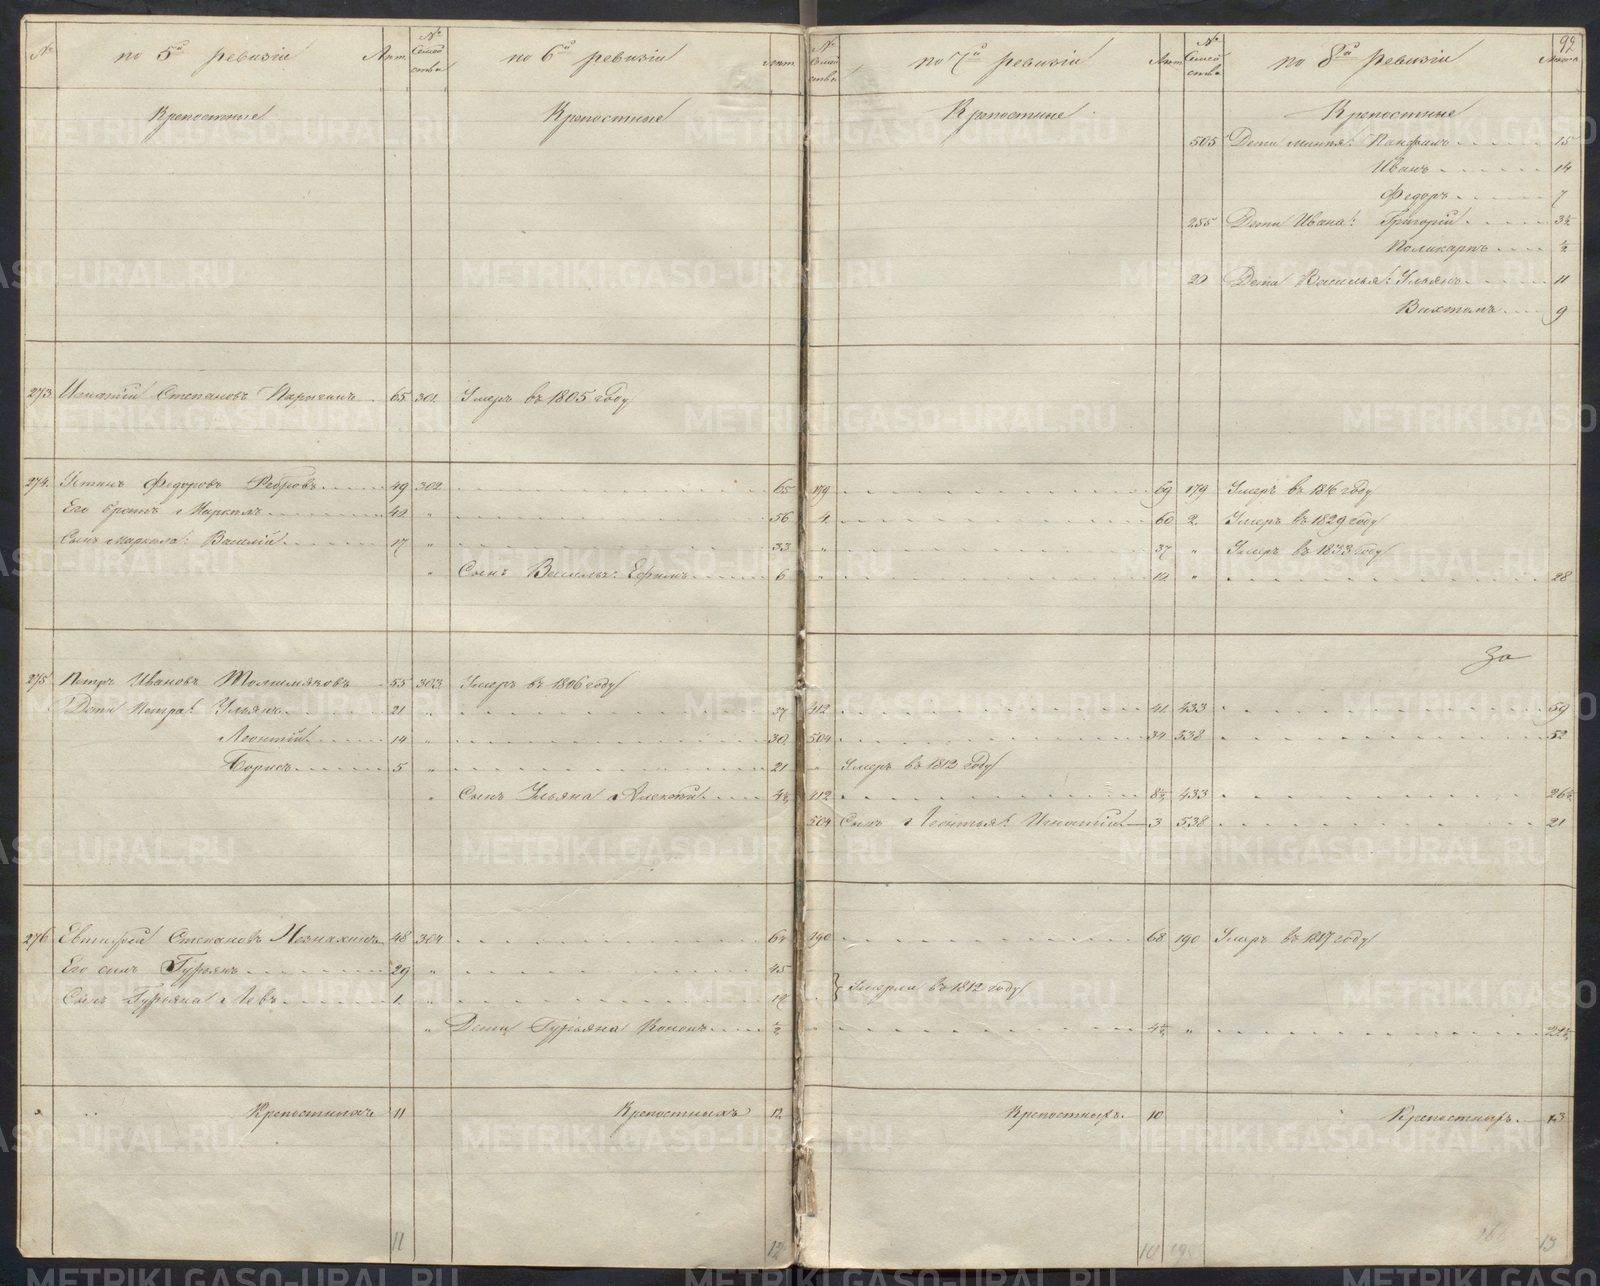 № по 5й ревизіи Лѣт. № Семейства по 6й ревизіи Лѣт. № Семейства по 7й ревизіи Лѣт. № Семейства по 8й ревизіи Лѣта 92
Крепостные Крепостные Крепостные Крепостные
505 Дети 15
Иванъ 14
Федоръ 7
255 Дети Ивана: Григорій 3½
Поликарпъ ½
20 Дети Василья: Ульянъ 11
9
273 Игнатій Степановъ 65 301 Умеръ въ 1805 году
274 Устинъ Федоровъ Ребровъ 49 302 65 179 69 179 Умеръ въ 1816 году
Его братъ Маркелъ 40 " 56 4 60 2 Умеръ въ 1829 году
Сынъ Маркела: Василій 17 " 33 " 37 " Умеръ въ 1833 году
" Сынъ Василья: Ефимъ 6 " 10 " 28
За
275 Петръ Ивановъ Толшмяковъ 55 303 Умеръ въ 1806 году
Дети Петра: Ульянъ 21 " 37 412 41 433 59
Леонтій 14 " 30 504 34 538 52
Борисъ 5 " 21 " Умеръ въ 1812 году
" Сынъ Ульяна Алексѣй 4½ 412 8½ 433 26½
504 Сынъ Леонтья: Игнатій 3 538 21
276 Степановъ 48 304 64 190 68 190 Умеръ въ 1817 году
Его сынъ Гурьянъ 29 " 45 } Умерли въ 1812 году
Сынъ Гурьяна Левъ 1 "
" Дети Гурьяна Кононъ ½ " 4½ " 22½
Крепостныхъ 11 Крепостныхъ 12 Крепостныхъ 10 Крепостныхъ 13
11 12 10 13